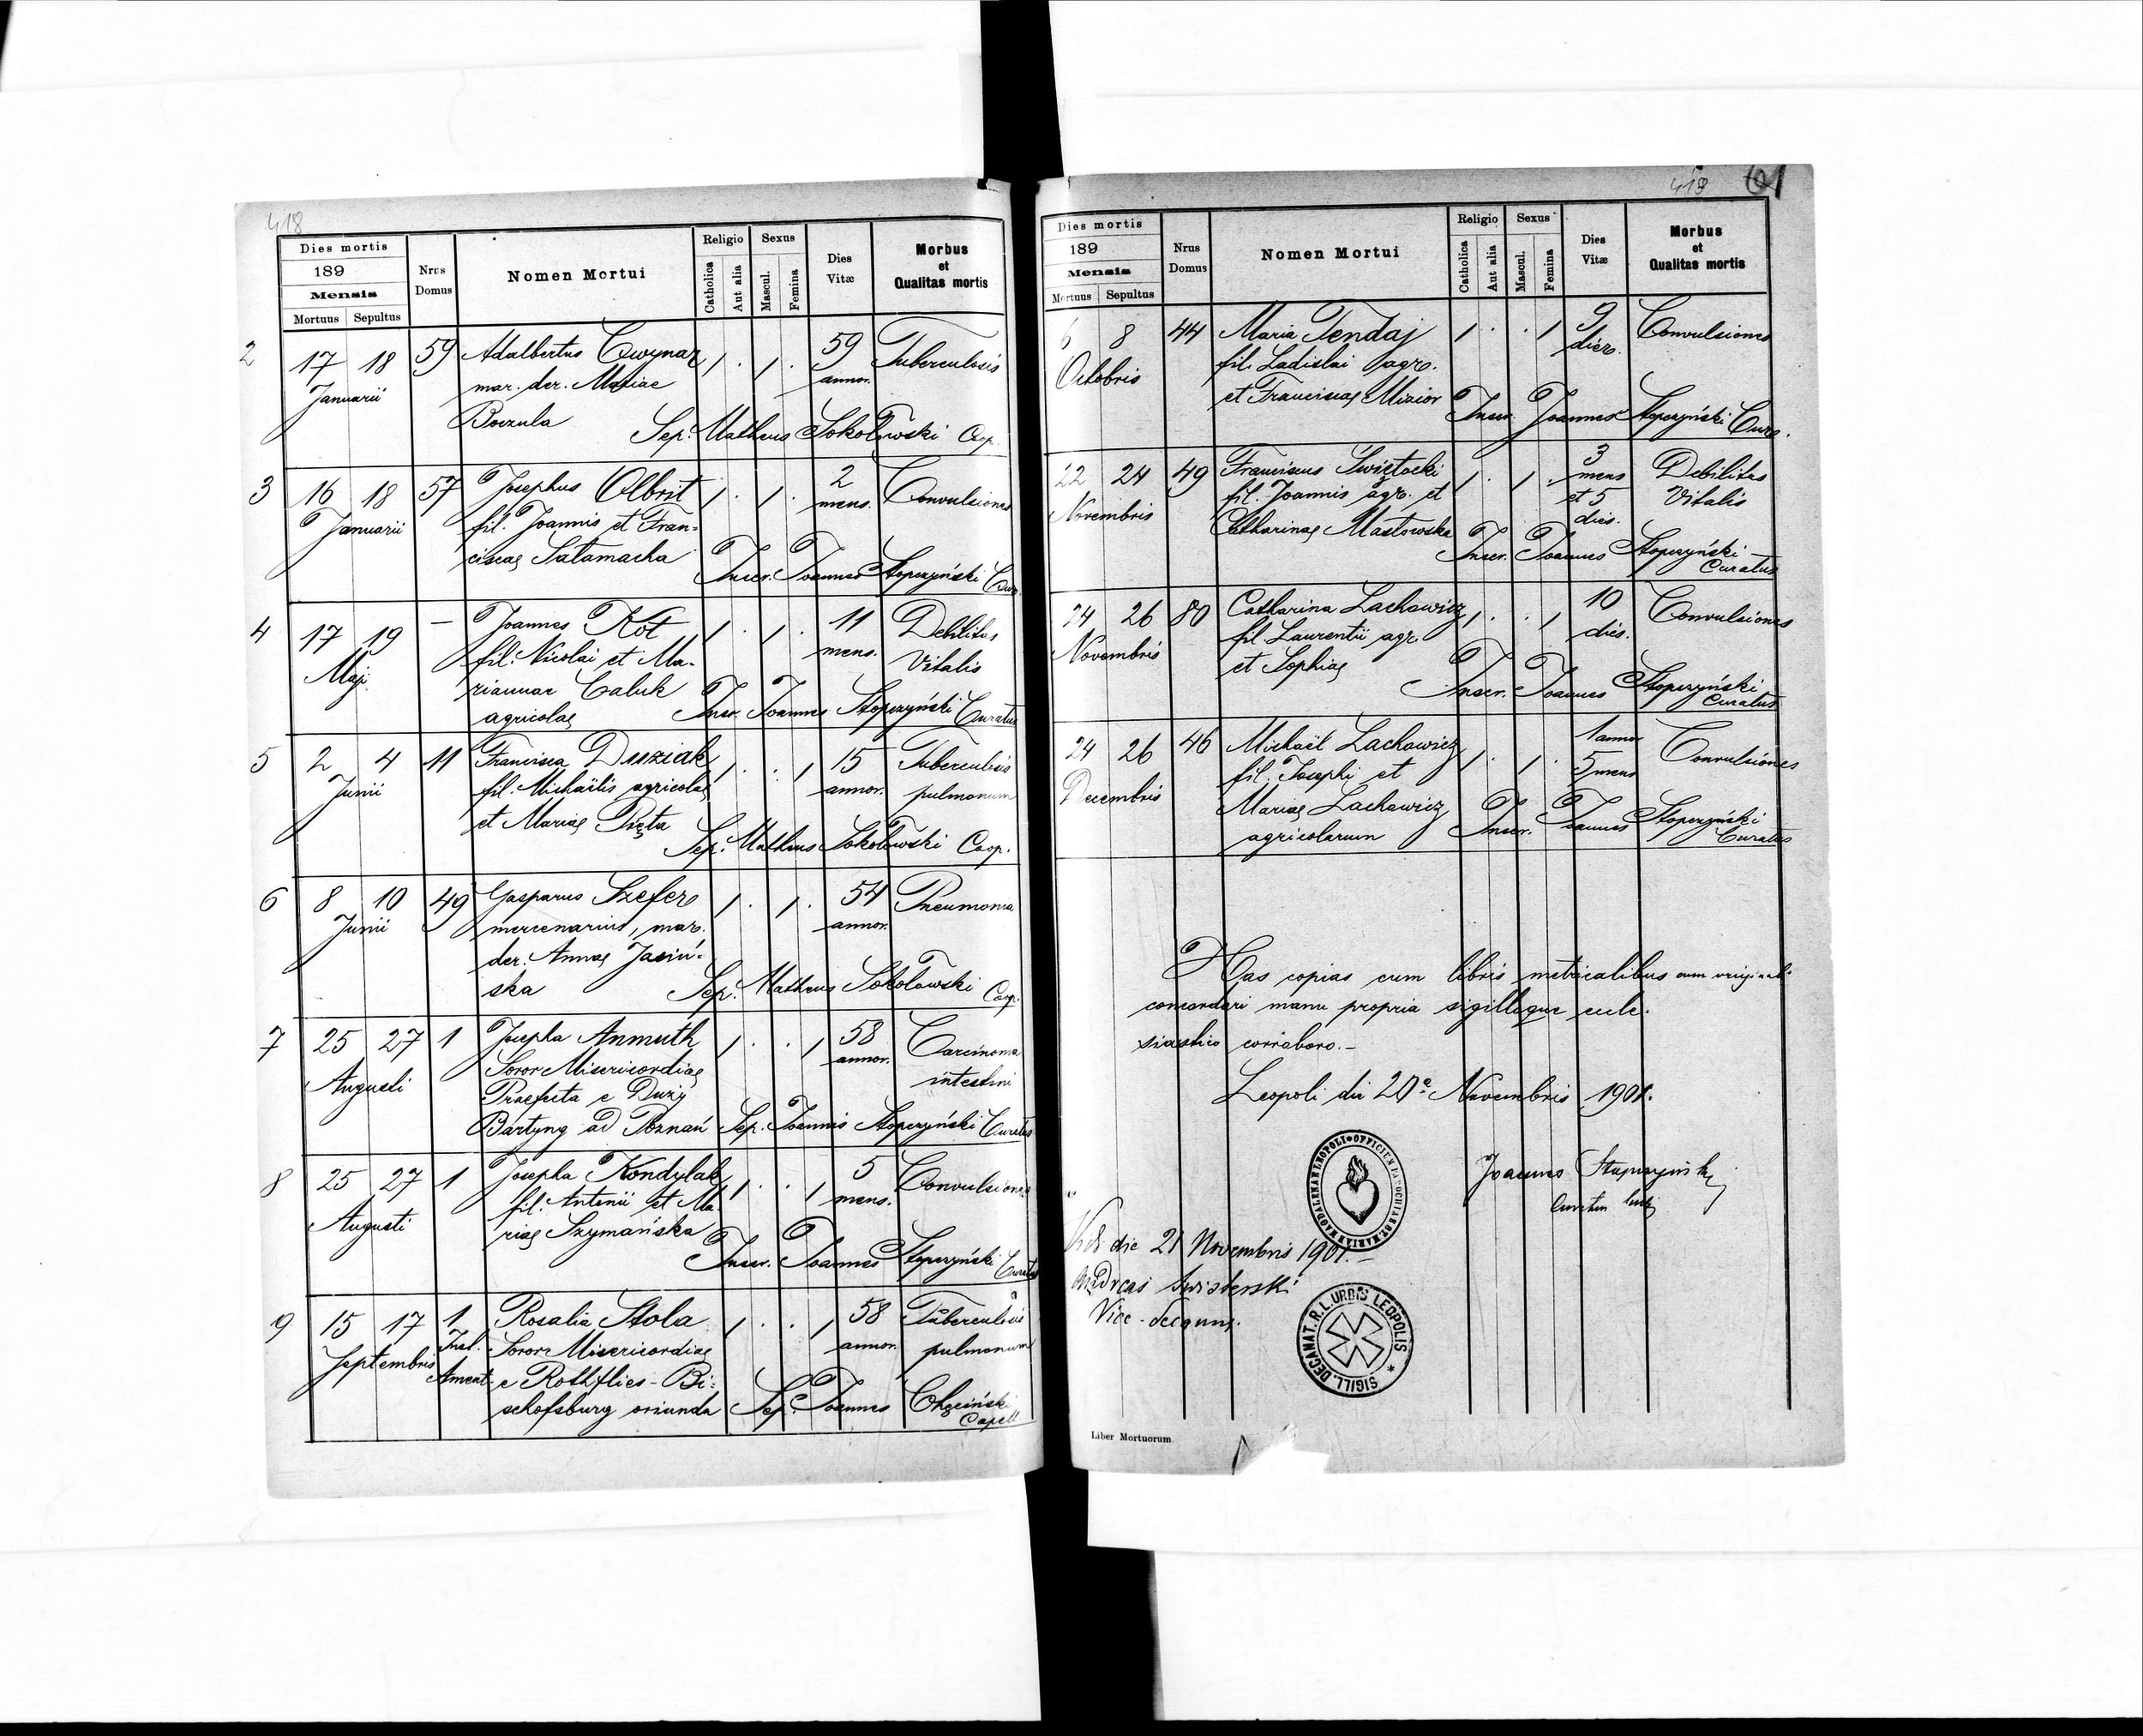 418
Dies mortis
189
Mensis
Mortuus Sepultus
Nrus Domus
Nomen Mortui
Religio
Catholica
Aut alia
Sexus
Mascul.
Femina
Dies Vitæ
Morbus et Qualitas mortis
2 17 18 59 Adalbertus Cwynar 1 . 1 . 59 Tuberculosis
Januarii mar. der. Mariae annor.
Boczula Sep. Matheus Sokołowski Coop.
3 16 18 57 Josephus Olbrit 1 . 1 . 2 Convulsiones
Januarii fil. Joannis et Fran- mens.
ciscae Sałamacha Inscr. Joannes Stopczyński Cur.
4 17 19 — Joannes Kot 1 . 1 . 11 Debilitas
Maji fil. Nicolai et Ma- mens. Vitalis
riannae Caluk
agricolae Inscr. Joannes Stopczyński Curatus
5 2 4 11 Francisca Duziak 1 . . 1 15 Tuberculosis
Junii fil. Michaëlis agricolae annor. pulmonum
et Mariae Pięta
Sep. Matheus Sokołowski Coop.
6 8 10 49 Gasparus Szefer 1 . 1 . 54 Pneumonia
Junii mercenarius, mar. annor.
der. Annae Jasiń-
ska Sep. Matheus Sokołowski Coop.
7 25 27 1 Josepha Anmuth 1 . . 1 58 Carcinoma
Augusti Soror Misericordiae annor. intestini
Praefecta e Duży
Bartyng ad Poznań Sep. Joannis Stopczyński Curatus
8 25 27 1 Josepha Kondylak 1 . . 1 5 Convulsiones
Augusti fil. Antonii et Ma- mens.
riae Szymańska
Inscr. Joannes Stopczyński Curatus
9 15 17 1 Rosalia Stola 1 . . 1 58 Tuberculosis
Septembris Inst. Soror Misericordiae annor. pulmonum
Ament. e Rothflies-Bi-
schofsburg oriunda Sep. Joannes Chęciński
Capell
419 61
Dies mortis
189
Mensis
Mortuus Sepultus
Nrus Domus
Nomen Mortui
Religio
Catholica
Aut alia
Sexus
Mascul.
Femina
Dies Vitæ
Morbus et Qualitas mortis
6 8 44 Maria Tendaj 1 . . 1 9 Convulsiones
Octobris fil. Ladislai agr. dier.
et Franciscae Mizior Inscr. Joannes Stopczyński Cur.
22 24 49 Franciscus Świętocki 1 . 1 . 3 mens et 5 dies. Debilitas Vitalis
Novembris fil. Joannis agr. et
Catharinae Masłowska Inscr. Joannes Stopczyński
Curatus
24 26 80 Catharina Lachowicz 1 . . 1 10 Convulsiones
Novembris fil. Laurentii agr. dies.
et Sophiae
Inscr. Joannes Stopczyński
Curatus
24 26 46 Michaël Lachowicz 1 . 1 . 1 annor 5 mens Convulsiones
Decembris fil. Josephi et
Mariae Lachowicz
agricolarum Inscr. Joannes Stopczyński
Curatus
Has copias cum libris metricalibus cum originali
concordari manu propria sigilloque eccle-
siastico corroboro.-
Leopoli die 20ª Novembris 1901.
Joannes Stopczyński
OFFICIUM PAROCHIAE ST. MARIAE MAGDALENAE LEOPOLI
Vidi die 21 Novembris 1901.-
Andreas
Vice-decanus.
SIGILL. DECANAT. R. L. URBIS LEOPOLIS
Liber Mortuorum